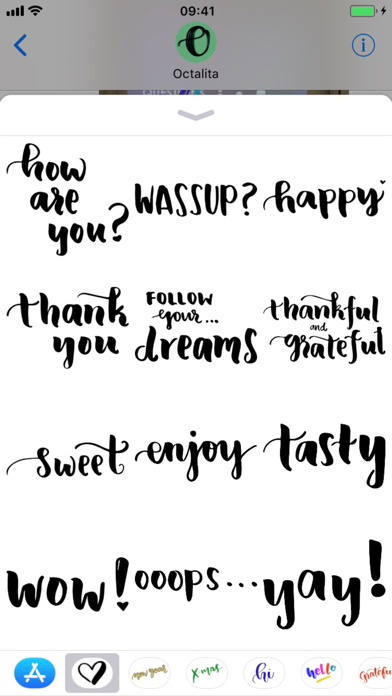 09:41
Octalita
how
are
you?
WASSUP?
happy
thank
you
FOLLOW
your...
dreams
thankful
and
grateful
sweet
enjoy
tasty
wow!
ooops...
yay!
new year
Xmas
hi
hello
grateful